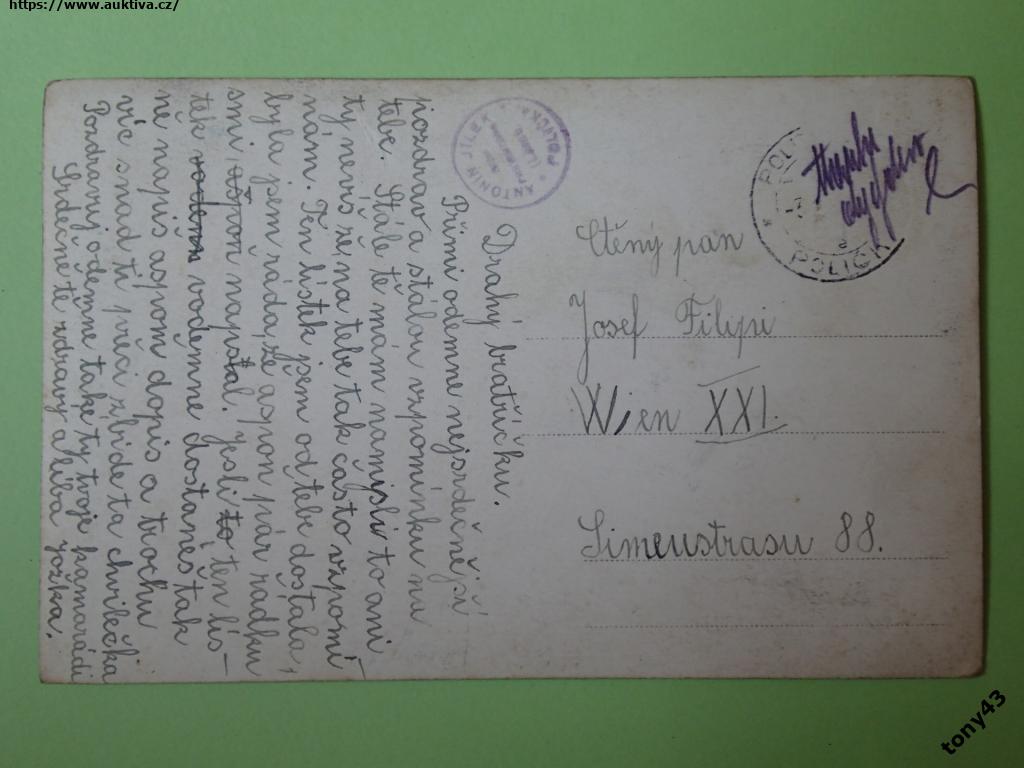 https://www.auktiva.cz/
Drahý bratříčku.
Přimi ódemne nejsrdečnější
pozdrav a stálou vzpomínku na
tebe. Stále tě mám na mysli to ani
ty nevíš že na tebe tak často vzpomí
nám. Ten lístek jsem od tebe dostala,
byla jsem ráda, že aspon pár řádku
smi napsal. Jesli ten lís-
tek vodemne dostaneš tak
ně napiš aspom dopis a trochu
víc snad ti přeci zbide ta chvilečka
Pozdravuj odemne také ty tvoje kamarádi
Srdečně tě zdraví a líbá Jožka.
ANTONÍN
POLIČKA
Ctěný pán
Josef Filipi
Wien XXI.
Simeustrasu 88.
POLIČK
tony43